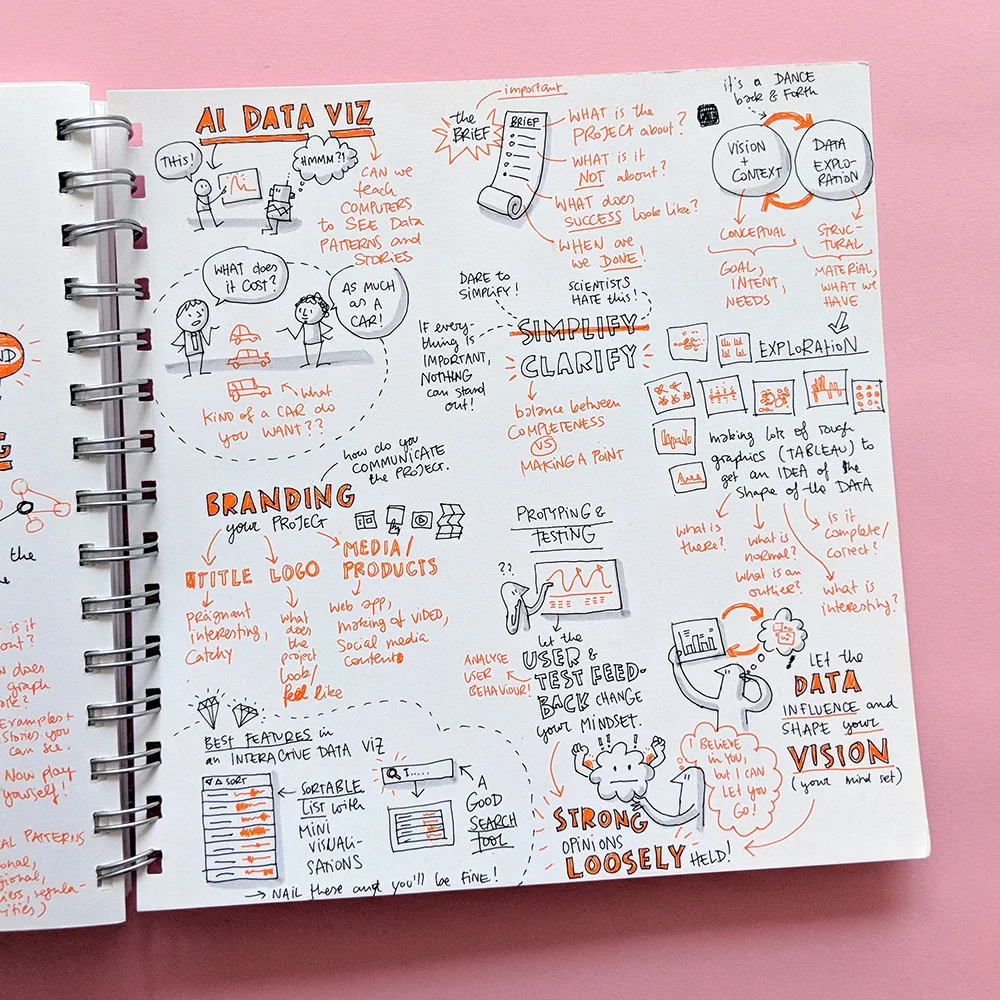 AI DATA VIZ
THIS!
HMMM?!
CAN we
teach
COMPUTERS
to SEE Data
PATTERNS and
STORIES
WHAT DOES
iT COST?
AS MUCH
AS A
CAR!
what
KIND OF A CAR do
you WANT??
important
the
BRIEF
BRIEF
WHAT is the
PROJECT about?
WHAT is it
NOT about?
WHAT does
SUCCESS look like?
WHEN are
we DONE!
it's a DANCE
back & FORTH
VISION
+
CONTEXT
DATA
EXPLO-
RATION
CONCEPTUAL
GOAL,
INTENT,
NEEDS
STRUC-
TURAL
MATERIAL,
WHAT WE
HAVE
DARE to
SIMPLIFY!
SCIENTISTS
HATE this!
IF every-
thing is
IMPORTANT,
NOTHING
can stand
out!
SIMPLIFY
CLARIFY
balance between
COMPLETENESS
VS
MAKING A POINT
EXPLORATION
making lots of rough
graphics (TABLEAU) to
get an IDEA of the
Shape of the DATA
what is
there?
what is
normal?
what is an
outlier?
is it
complete/
correct?
what is
interesting?
how do you
COMMUNICATE
the PROJECT.
BRANDING
your PROJECT
TITLE
prägnant
interesting,
Catchy
LOGO
what
does
the
project
look/
feel like
MEDIA/
PRODUCTS
Web app,
making of VIDEO,
Social media
content
PROTYPING &
TESTING
??
let the
USER &
TEST FEED-
BACK CHANGE
your MINDSET.
ANALYSE
USER
BEHAVIOUR!
LET the
DATA
INFLUENCE and
SHAPE your
VISION
(your mind set)
!!
I BELIEVE
in YOU,
but I CAN
LET YOU
GO!
STRONG
OPINIONS
LOOSELY HELD!
BEST FEATURES in
an INTERACTIVE DATA VIZ
SORT
SORTABLE
LIST with
MINI
VISUALI-
SATIONS
I.....
A
GOOD
SEARCH
TOOL
NAIL these and you'll be FINE!
ND
G
the
graph
Examples +
stories you
can see.
Now play
yourself!
PATTERNS